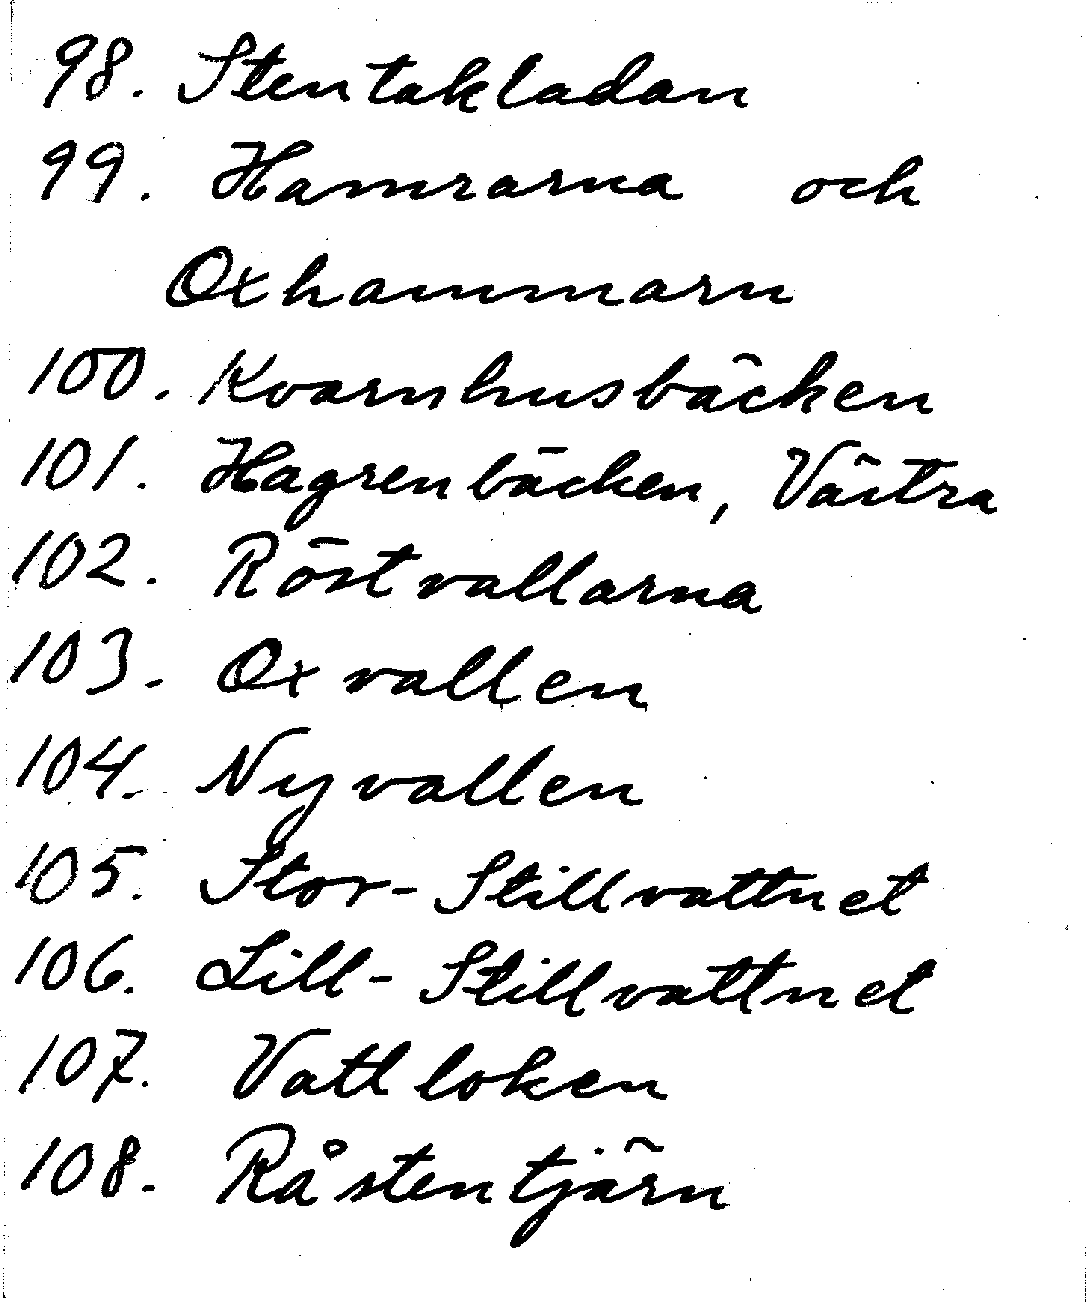 98. Stentakladan
99. Hamrarna och
Oxhammarn
100. Kvarnhusbäcken
101. Hagrenbäcken, Västra
102. Röstvallarna
103. Oxvallen
104. Nyvallen
105. Stor-Stillvattnet
106. Lill-Stillvattnet
107. Vattloken
108. Råstentjärn